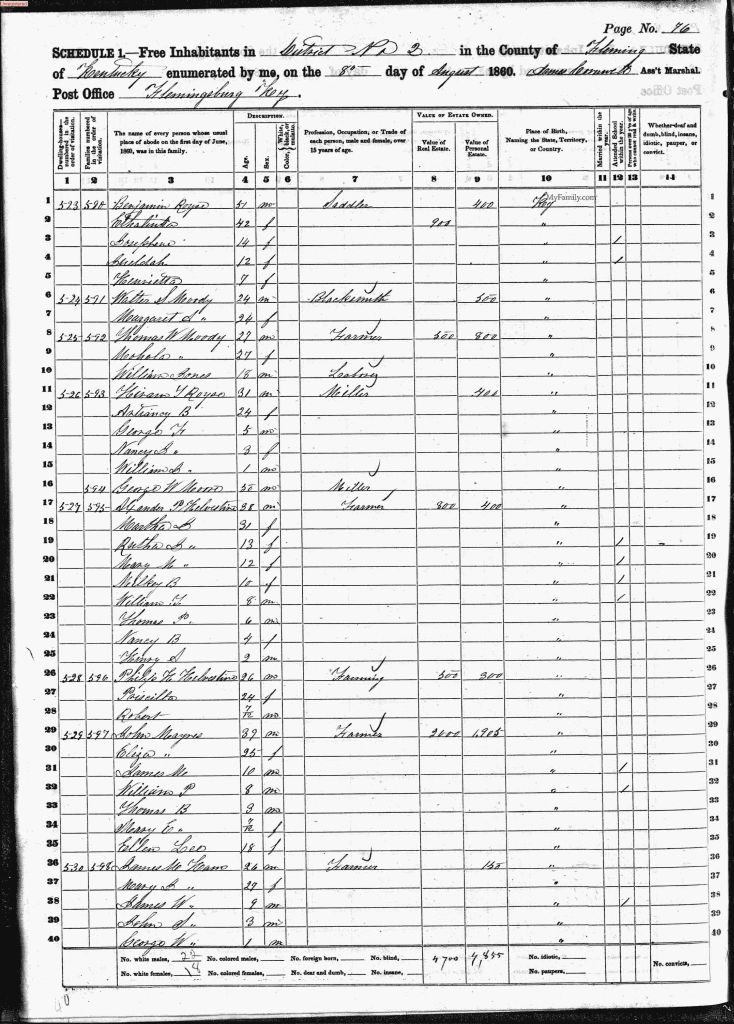 Page No. 76
SCHEDULE 1.—Free Inhabitants in District No 2 in the County of Fleming State
of Kentucky enumerated by me, on the 8th day of August 1860. James Ass't Marshal.
Post Office Flemingsburg Key.
Dwelling-houses—numbered in the order of visitation.
Families numbered in the order of visitation.
The name of every person whose usual place of abode on the first day of June, 1860, was in this family.
DESCRIPTION.
Age.
Sex.
Color, White, black, or mulatto.
Profession, Occupation, or Trade of each person, male and female, over 15 years of age.
VALUE OF ESTATE OWNED.
Value of Real Estate.
Value of Personal Estate.
Place of Birth, Naming the State, Territory, or Country.
Married within the year.
Attended School within the year.
Persons over 20 y'rs of age who cannot read & write.
Whether deaf and dumb, blind, insane, idiotic, pauper, or convict.
1 2 3 4 5 6 7 8 9 10 11 12 13 14
MyFamily.com
1 523 590 Benjamin Royse 51 m Saddler 400 Key 1
2 42 f 900 " 2
3 Josephine 14 f " / 3
4 12 f " / 4
5 Henrietta 7 f " 5
6 524 591 Walter S Moody 24 m Blacksmith 500 " 6
7 Margaret S " 24 f " 7
8 525 592 Thomas W Moody 27 m Farmer 500 800 " 8
9 " 27 f " 9
10 William Jones 18 m Laborer " 10
11 526 593 Hiram T Royse 31 m Miller 400 " 11
12 B 24 f " 12
13 George F 5 m " 13
14 Nancy J " 3 f " 14
15 William J " 1 m " 15
16 594 George W Moore 50 m Miller " 16
17 527 595 P Helvestine 38 m Farmer 800 400 " 17
18 Martha J 31 f " 18
19 Rutha J " 13 f " / 19
20 Mary M " 12 f " / 20
21 B 10 f " / 21
22 William T 8 m " / 22
23 Thomas P. 6 m " 23
24 Nancy B 4 f " 24
25 Henry S 2 m " 25
26 528 596 Philip H Helvestine 26 m Farming 500 300 " 26
27 Priscilla 24 f " 27
28 Robert 7/12 m " 28
29 529 597 John 39 m Farmer 2000 1,905 " 29
30 Eliza " 25 f " 30
31 James M 10 m " / 31
32 William P 8 m " / 32
33 Thomas B 3 m " 33
34 Mary E " 7/12 f " 34
35 Ellen Lee 18 f " 35
36 530 598 James M Ham 26 m Farmer 150 " 36
37 Mary J " 29 f " 37
38 James W " 9 m " / 38
39 John S " 3 m " 39
40 George W " 1 m " 40
No. white males, 22 No. colored males, No. foreign born, No. blind, 4700 4,855 No. idiotic, No. convicts,
No. white females, 18 No. colored females, No. deaf and dumb, No. insane, No. paupers,
40